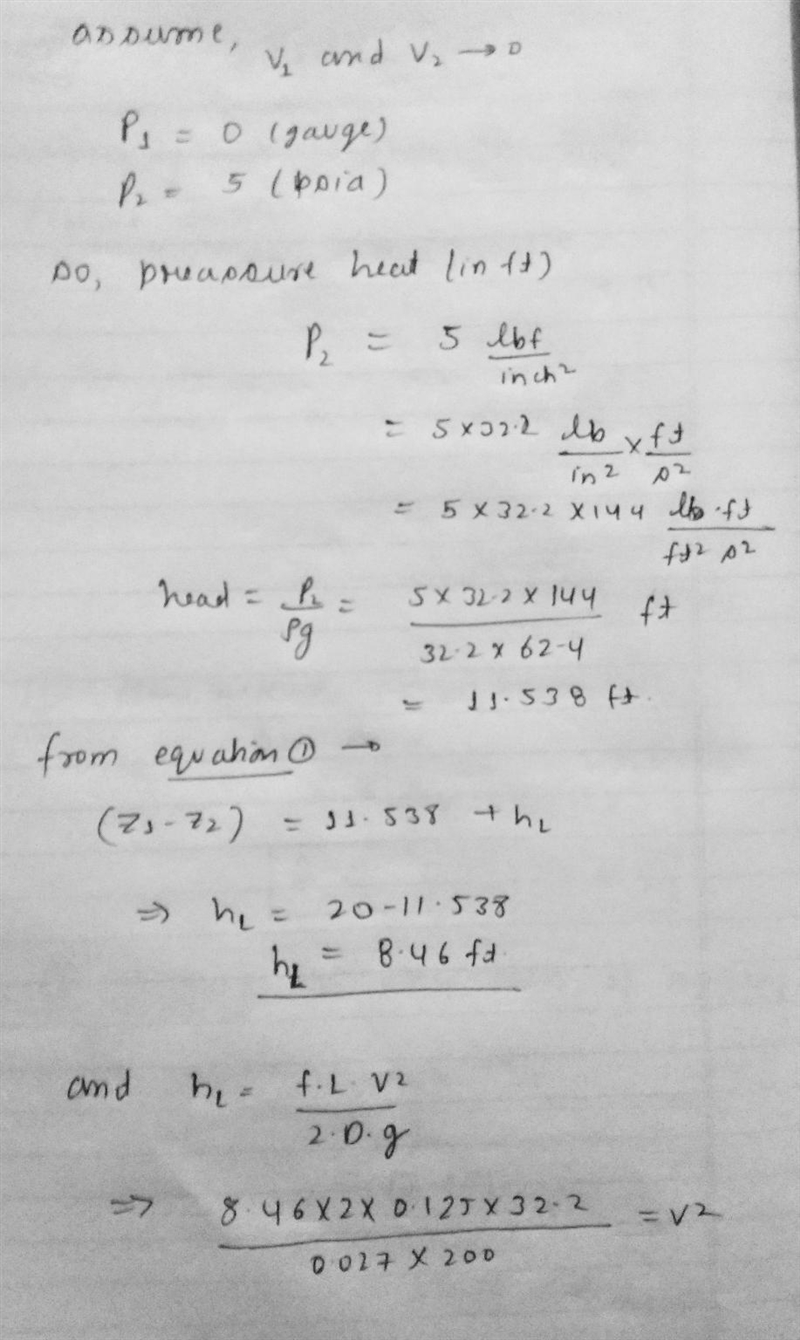 assume, V₁ and V₂ → 0
P₁ = 0 (gauge)
P₂ = 5 (psia)
so, preassure heat (in ft)
P₂ = 5 lbf/inch²
= 5 × 32.2 lb/in² × ft/s²
= 5 × 32.2 × 144 lb·ft/ft² s²
head = P₂/ρg = 5 × 32.2 × 144 / 32.2 × 62.4 ft
= 11.538 ft.
from equation ① →
(Z₁ - Z₂) = 11.538 + hL
⇒ hL = 20 - 11.538
hL = 8.46 ft.
and hL = f.L. V² / 2.D.g
⇒ 8.46 × 2 × 0.125 × 32.2 / 0.027 × 200 = V²